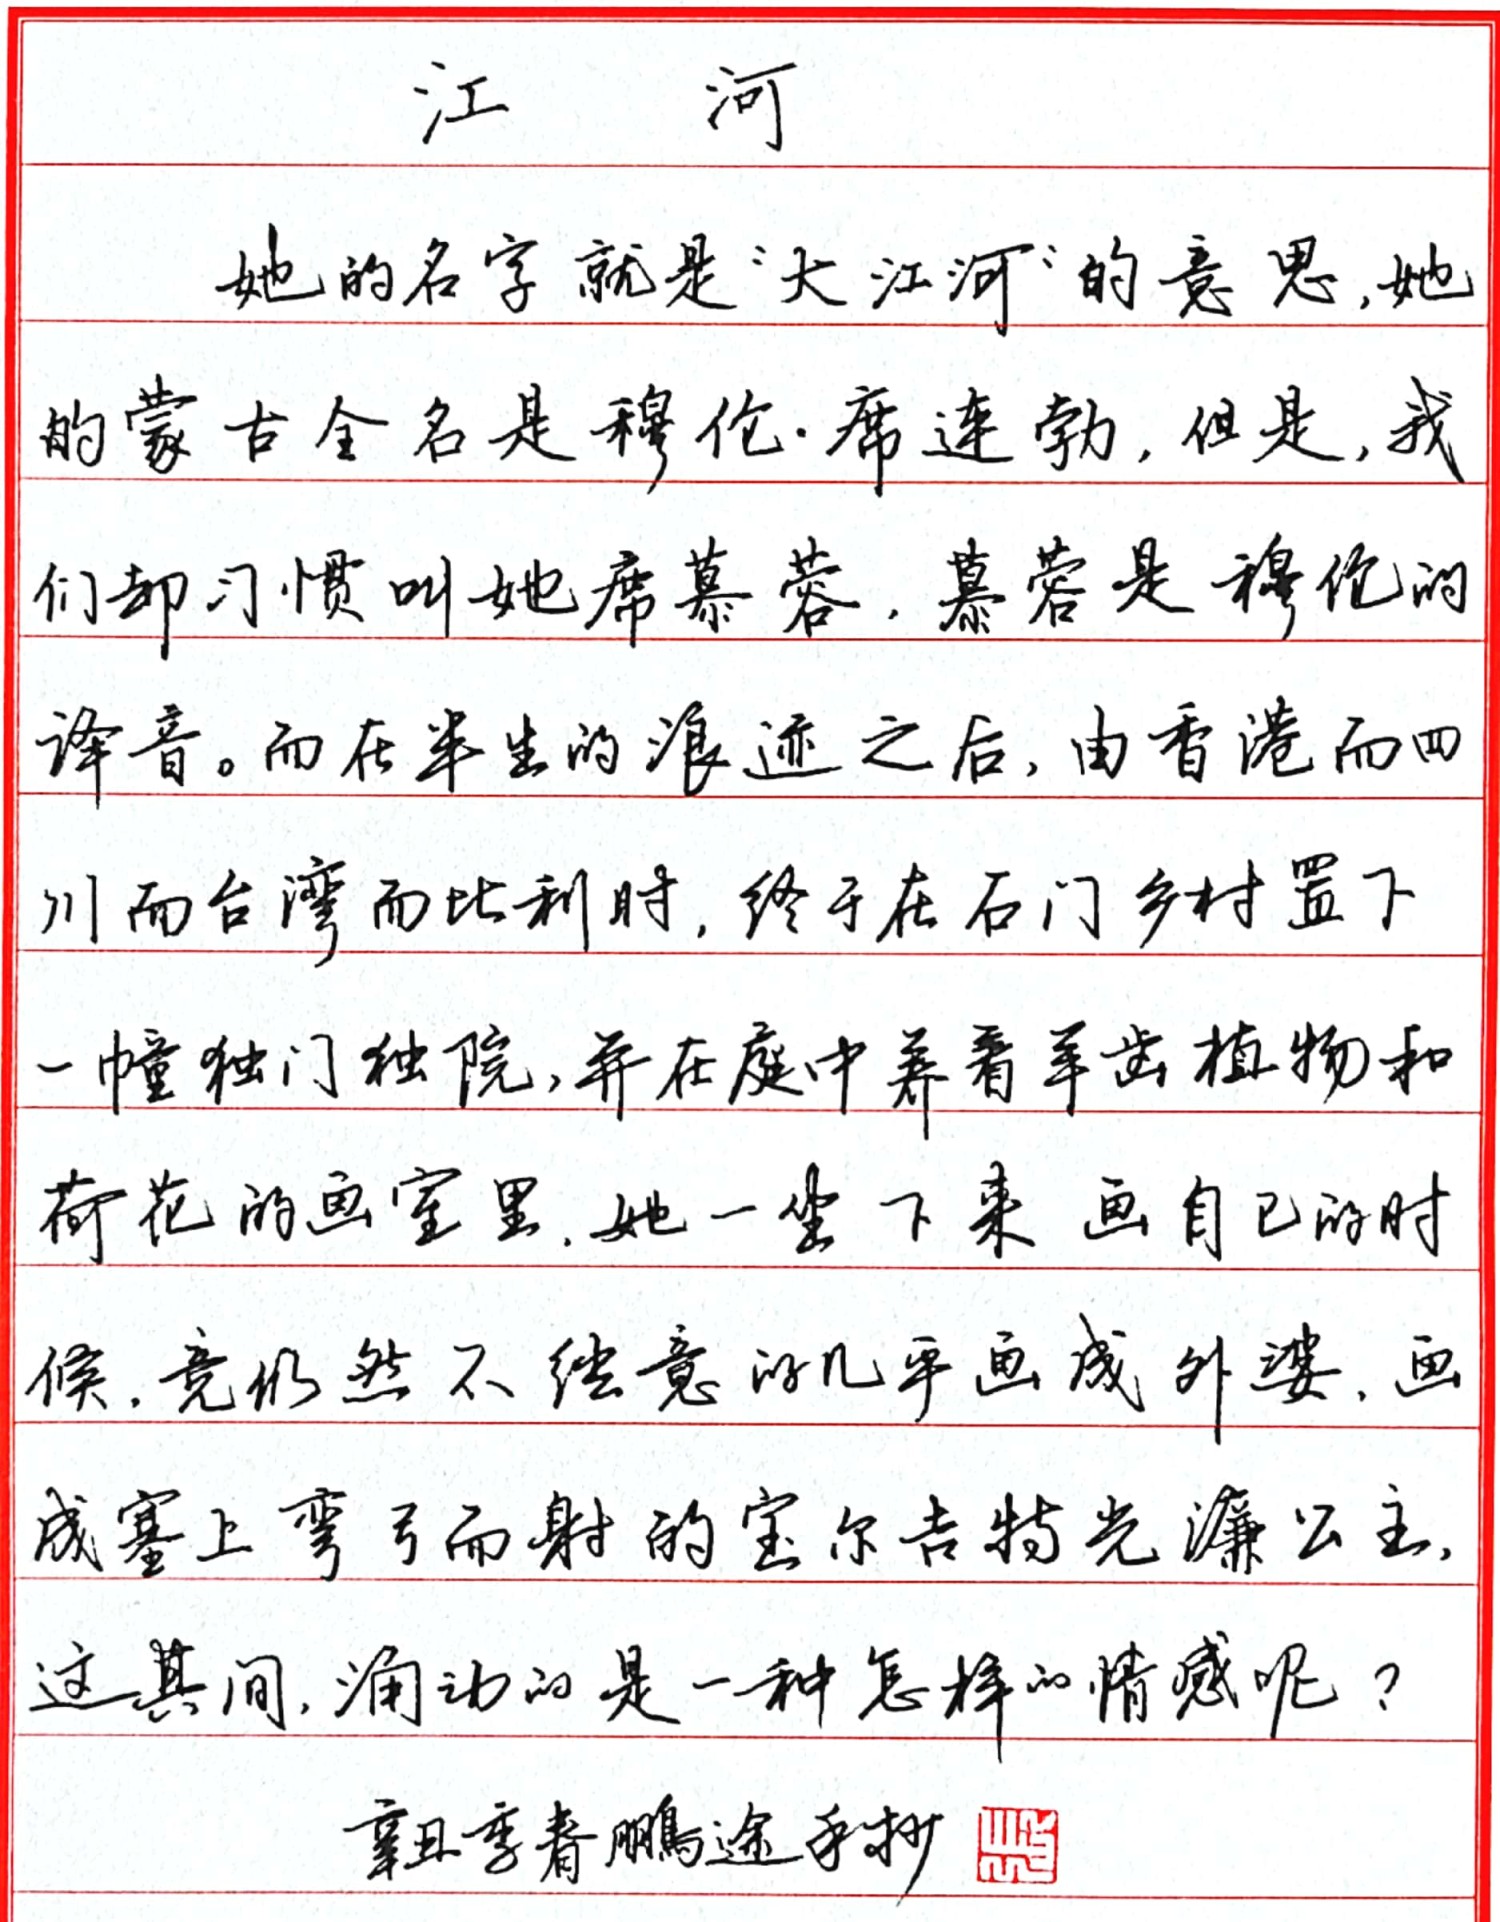 江 河
她的名字就是“大江河”的意思,她
的蒙古全名是穆伦·席连勃,但是,我
们却习惯叫她席慕蓉,慕蓉是穆伦的
译音。而在半生的浪迹之后,由香港而四
川而台湾而比利时,终于在石门乡村置下
一幢独门独院,并在庭中养着羊齿植物和
荷花的画室里,她一坐下来画自己的时
候,竟仍然不经意的几乎画成外婆,画
成塞上弯弓而射的宝尔吉特光濂公主,
这其间,涌动的是一种怎样的情感呢?
辛丑季春鹏途手抄